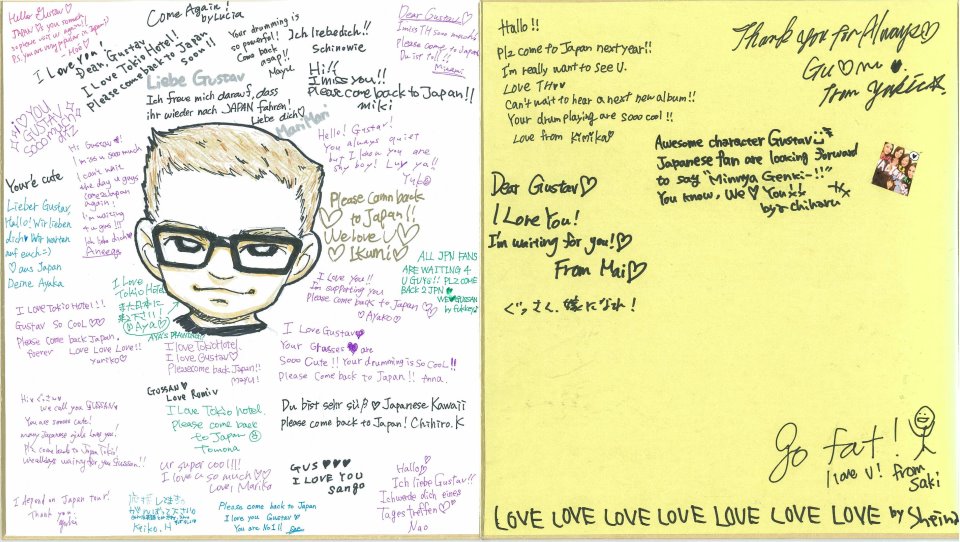 Hello Gustav ♡
Thank you so much
Come Again!
by Lucia
I Love You!
Dear, Gustav
I Love Tokio Hotel!
Please come back to Japan
soon!!
Your drumming is
so powerful!
Come back
again!!
Mayu
Ich liebe dich!!
Schinowie
Dear Gustav ♡
Please come to Japan
Du ist toll!!
Minami
Hi!!
I miss you!!
Please come back to Japan!!
miki
Liebe Gustav
Ich freue mich darauf, dass
ihr wieder nach JAPAN fahren!
Liebe dich ♡
MariMari
I ♡ YOU
GUSTAV
Hi Gussan!
I miss u soo much
I can't wait
the day u guys
come to Japan
again!
I'm waiting
4 u guys!!
Ich liebe dich ♡
Hello! Gustav!
You always quiet
but I know you are
shy boy! Luv ya!!
Yuko
Your'e cute
Lieber Gustav,
Hallo! Wir lieben
dich ♡ Wir warten
auf euch =)
♡ aus Japan
Deine Ayaka
Please Comn back
to Japan!!
We love U ♡
♡ Ikumi ♡
ALL JPN FANS
ARE WAITING 4
U GUYS!! PLZ COME
BACK 2 JPN ♥
WE ♥ GUSSAN
by Fukkey
I Love
Tokio Hotel
また日本に
来て下さい!
@Aya♡
I Love You!!
I'm supporting you
Please come back to Japan ♡
♡ Ayako ♡
I LOVE Tokio Hotel!!!
GUSTAV SO COOL ♡♡♡
Please come Back Japan.
forever Love Love Love!!
yuriko♡
I love Tokio Hotel.
I love Gustav♡
Please come back Japan!!
mayu!
I Love Gustav♥
Your Grasses ♥ are
Sooo Cute!! Your drumming is So COOL!!
Please Come back to Japan!! Anna.
GUSSAN ♥
Love Romiv
Hi♥ぐっさん♥
we call you GUSSAN♥
You are soooo cute!
many Japanese girls love you!
Plz come back to Japan Tokio!
We allways waiting for you Gussan!!
I Love Tokio Hotel.
Please come back
to Japan
Tomona
Du bist sehr süß ♡ Japanese Kawaii
please come back to Japan! Chihiro.K
ur super cool!!!
I love u so much ♡♡
Love, Marika
GUS ♥♥♥
I LOVE YOU
sango
Hallo♡
Ich liebe Gustav!!
Ich werde dich eines
Tages treffen ♡
Nao
I depend on Japan tour!
Thank you
Keiko.H
Please come back to Japan
I love you Gustav ♡
You are No1!!
Hallo!!
Plz come to Japan next year!!
I'm really want to see U.
Love TH♥♥
Can't wait to hear a next new album!!
Your drum playing are sooo cool!!
Love from Kimika♡
Thank you for Always♡
From Yukie☆
Awesome character Gustav
Japanese fan are looking forward
to say "Minnya Genki-!!"
You know, We ♡ You!!
by☆chiharu
Dear Gustav♡
I Love You!
I'm waiting for you!♡
From Mai♡
ぐっさん、嫁になれ!
go fat!
I love U! from
Saki
LOVE LOVE LOVE LOVE LOVE LOVE LOVE by Sheina